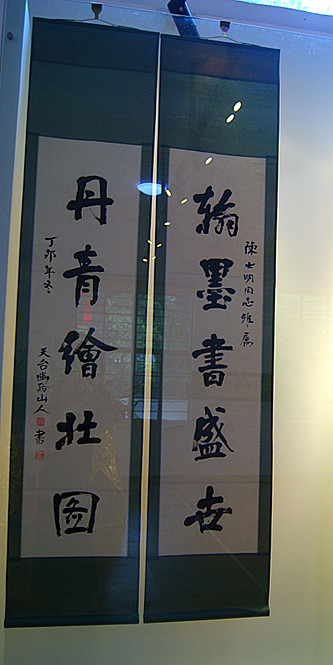 陳士明同志雅属
翰墨書盛世
丹青繪壯圖
丁卯年冬
天台幽山人書